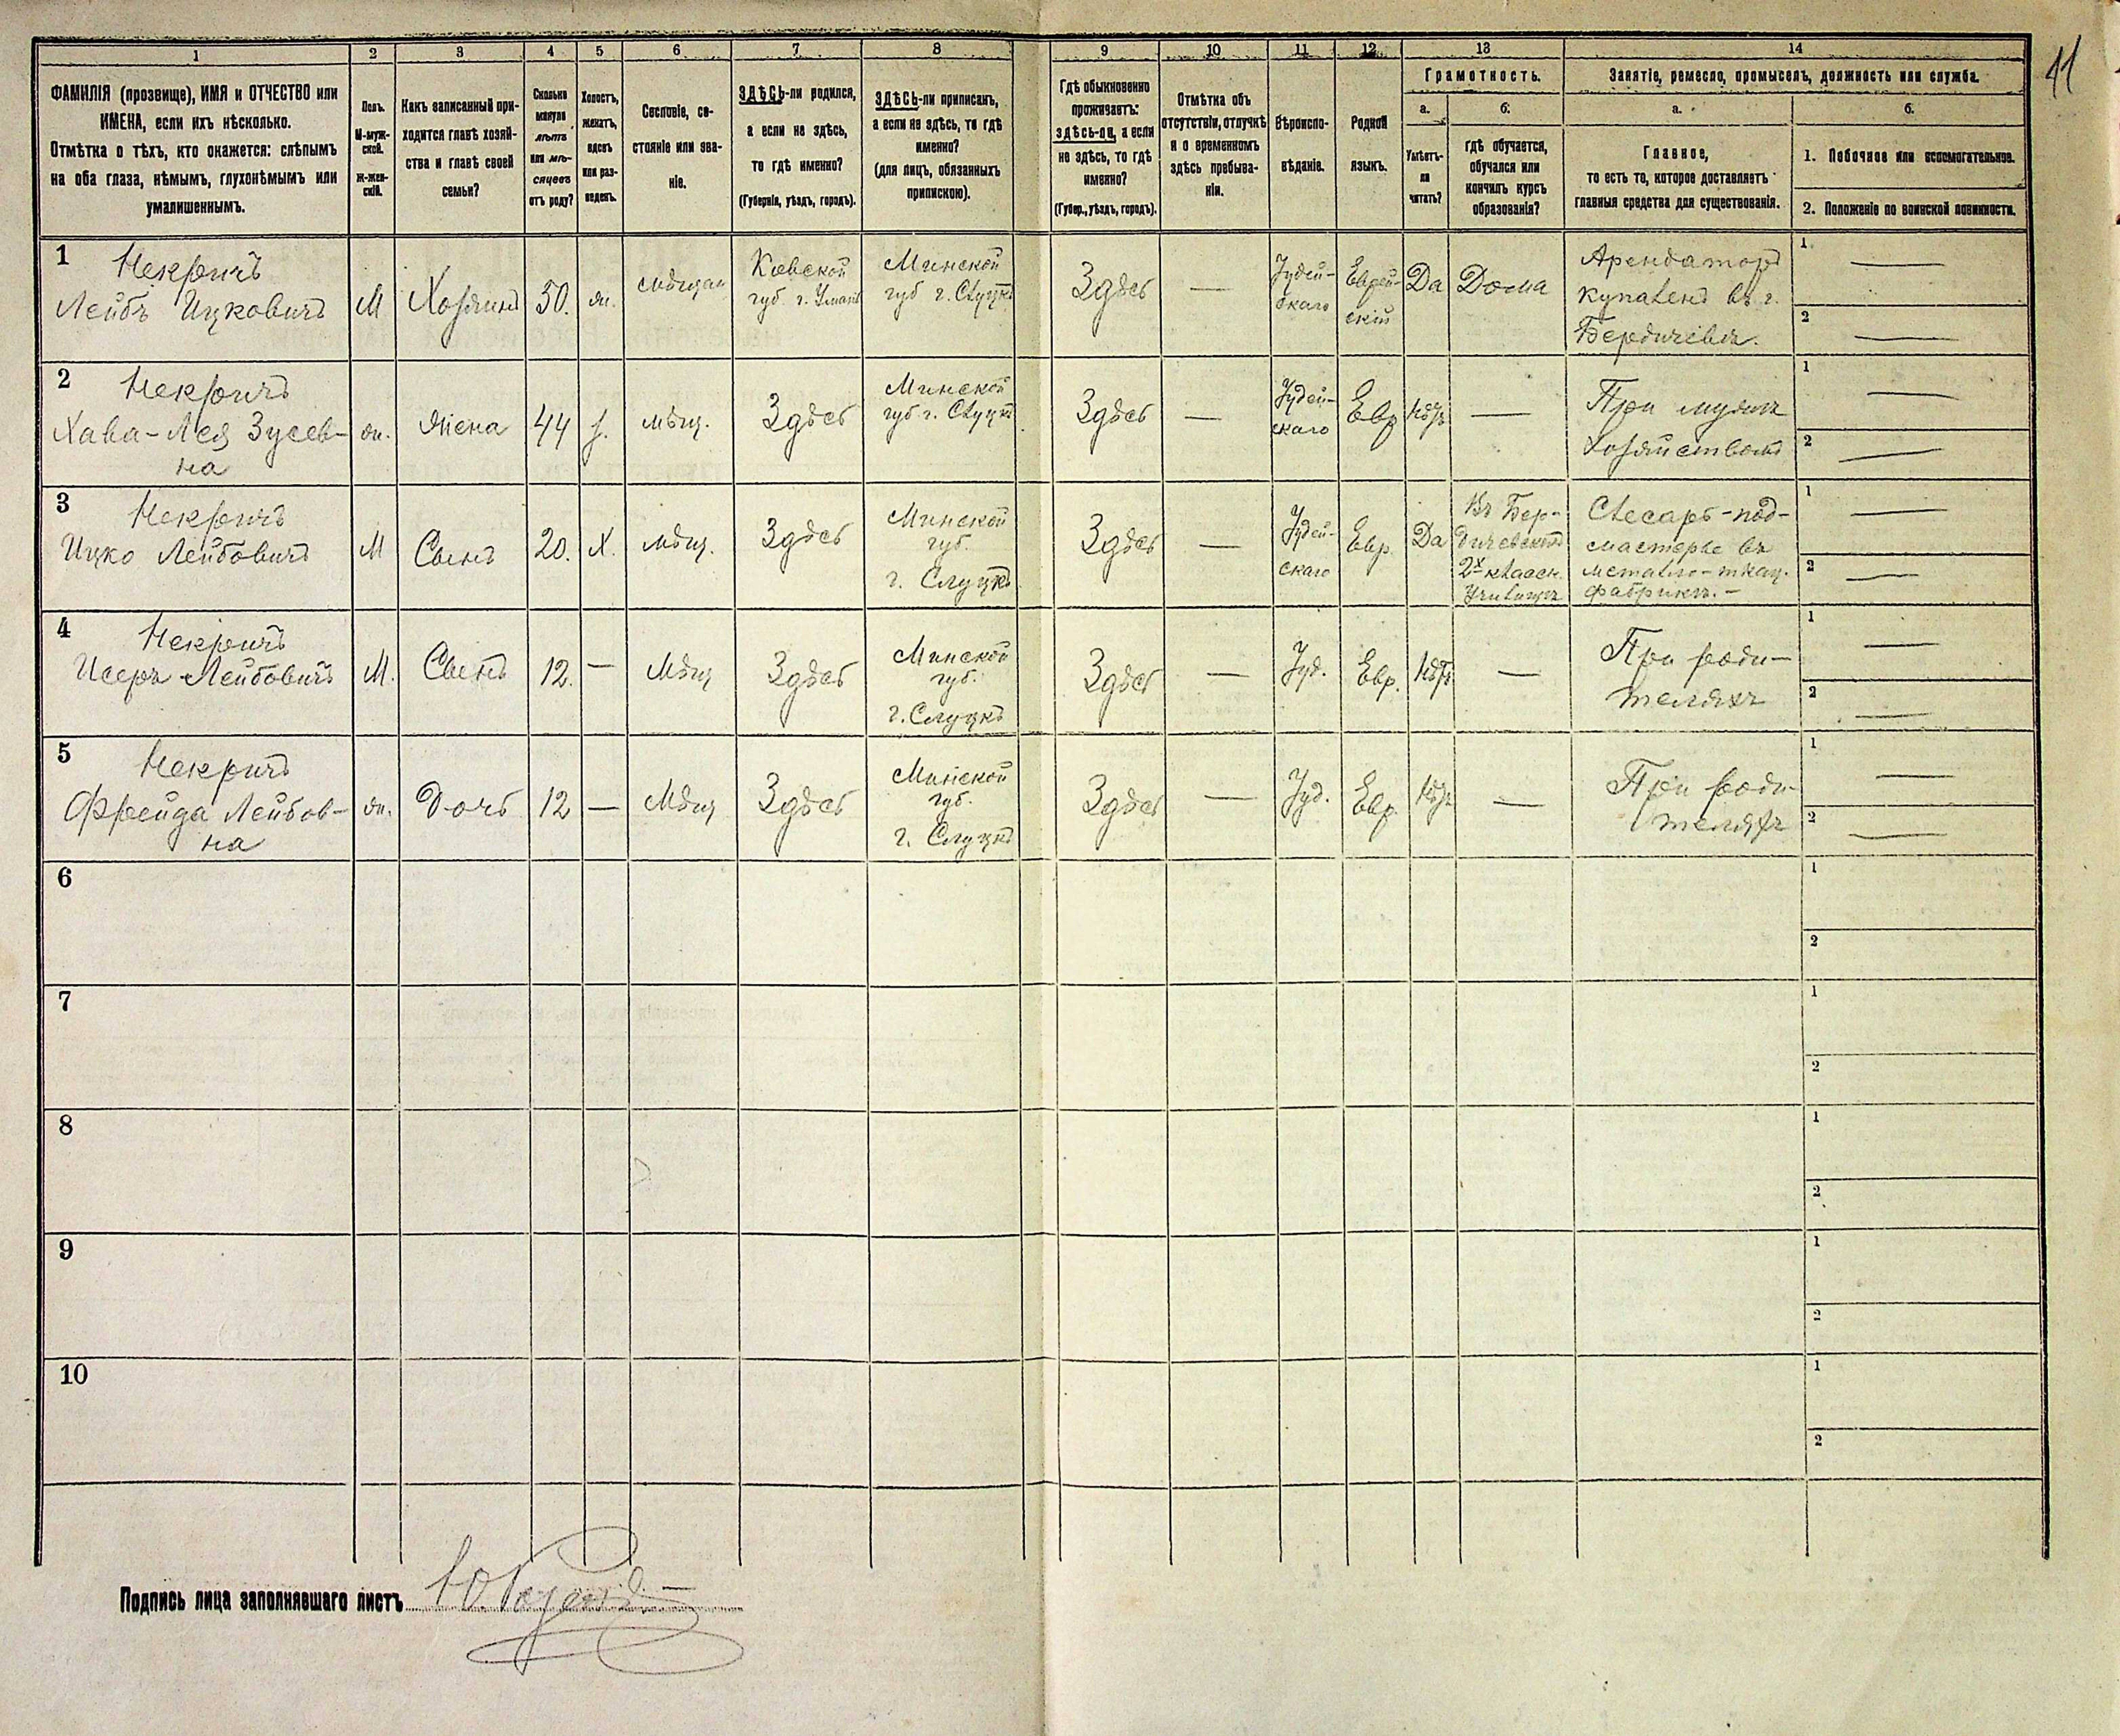 41
1
2
3
4
5
6
7
8
9
10
11
12
13
14
ФАМИЛІЯ (прозвище), ИМЯ и ОТЧЕСТВО или
ИМЕНА, если ихъ нѣсколько.
Отмѣтка о тѣхъ, кто окажется: слѣпымъ
на оба глаза, нѣмымъ, глухонѣмымъ или
умалишеннымъ.
Полъ.
М-муж-
ской.
ж-жен-
скій.
Какъ записанный при-
ходится главѣ хозяй-
ства и главѣ своей
семьи?
Сколько
минуло
лѣтъ
или мѣ-
сяцевъ
отъ роду?
Холостъ,
женатъ,
вдовъ
или раз-
веденъ.
Сословіе, со-
стояніе или зва-
ніе.
ЗДѢСЬ-ли родился,
а если не здѣсь,
то гдѣ именно?
(Губернія, уѣздъ, городъ).
ЗДѢСЬ-ли приписанъ,
а если не здѣсь, то гдѣ
именно?
(для лицъ, обязанныхъ
припискою).
Гдѣ обыкновенно
проживаетъ:
здѣсь-ли, а если
не здѣсь, то гдѣ
именно?
(Губер., уѣздъ, городъ).
Отмѣтка объ
отсутствіи, отлучкѣ
и о временномъ
здѣсь пребыва-
ніи.
Вѣроиспо-
вѣданіе.
Родной
языкъ.
Грамотность.
а.
Умѣетъ-
ли
читать?
б.
гдѣ обучается,
обучался или
кончилъ курсъ
образованія?
Занятіе, ремесло, промыселъ, должность или служба.
а.
Главное,
то есть то, которое доставляетъ
главныя средства для существованія.
б.
1. Побочное или вспомогательное.
2. Положеніе по воинской повинности.
1
Некричъ
Лейбъ Ицковичъ
М
Хозяинъ
50.
ж.
мѣщан
Кіевской
губ. г. Умань
Минской
губ г. Слуцкъ
Здѣсь
—
Іудей-
скаго
Еврей-
скій
Да
Дома
Арендаторъ
купаленъ въ г.
Бердичевѣ.
1 —
2 —
2
Некричъ
Хава-Лея Зусев-
на
ж.
жена
44
з.
мѣщ.
Здѣсь
Минской
губ г. Слуцкъ
Здѣсь
—
Іудей-
скаго
Евр
Нѣтъ
—
При мужѣ
хозяйством
1 —
2 —
3
Некричъ
Ицко Лейбовичъ
М
Сынъ
20.
Х.
мѣщ.
Здѣсь
Минской
губ.
г. Слуцкъ
Здѣсь
—
Іудей-
скаго
Евр.
Да
Въ Бер-
дичевском
2х классн.
Училищѣ
Слесарь-под-
мастерье въ
метално-ткац.
фабрикѣ. —
1 —
2 —
4
Некричъ
Исеръ Лейбовичъ
М.
Сынъ
12.
—
мѣщ
Здѣсь
Минской
губ.
г. Слуцкъ
Здѣсь
—
Іуд.
Евр.
Нѣтъ
—
При роди-
теляхъ
1 —
2 —
5
Некричъ
Фрейда Лейбов-
на
ж.
Дочь
12
—
мѣщ
Здѣсь
Минской
губ.
г. Слуцкъ
Здѣсь
—
Іуд.
Евр.
Нѣтъ
—
При роди-
теляхъ
1 —
2 —
6
1
2
7
1
2
8
1
2
9
1
2
10
1
2
Подпись лица заполнявшаго листъ